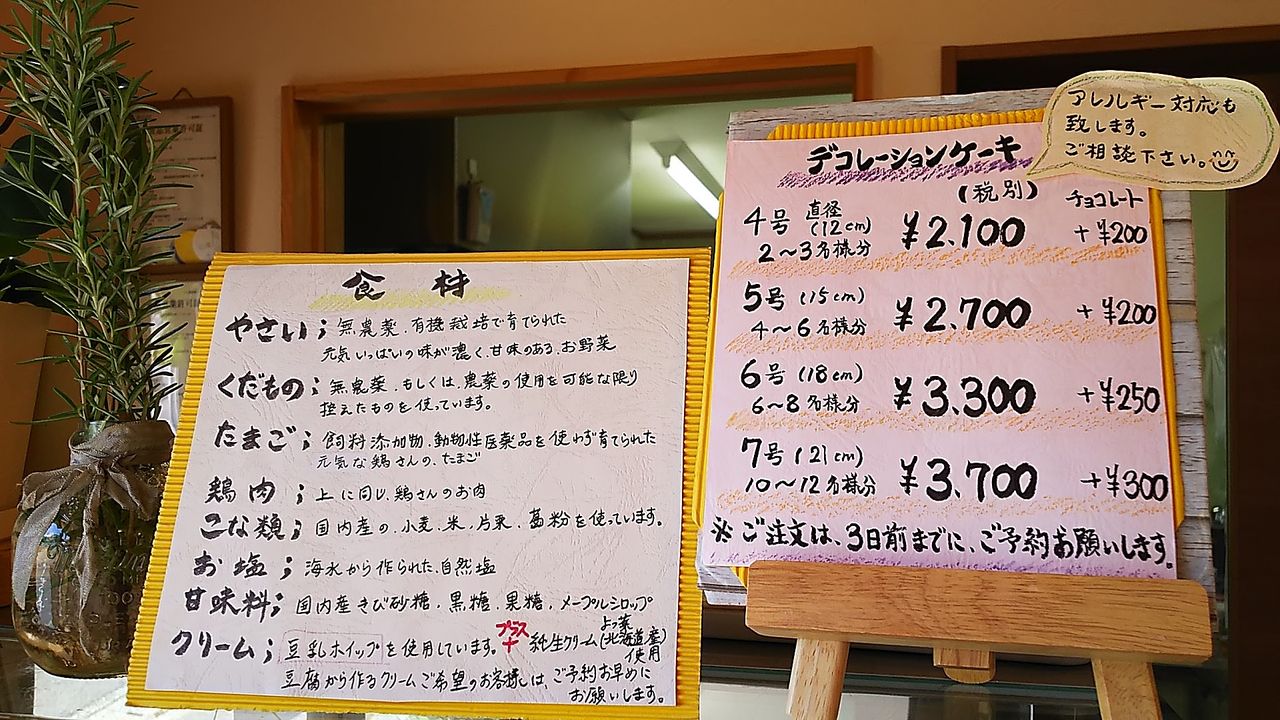 食材
やさい；無農薬、有機栽培で育てられた
元気いっぱいの味が濃く、甘味のある、お野菜
くだもの；無農薬、もしくは、農薬の使用を可能な限り
控えたものを使っています。
たまご；飼料添加物、動物性医薬品を使わず育てられた
元気な鶏さんの、たまご
鶏肉；上に同じ、鶏さんのお肉
こな類；国内産の、小麦、米、片栗、葛粉を使っています。
お塩；海水から作られた、自然塩
甘味料；国内産きび砂糖、黒糖、果糖、メープルシロップ
クリーム；豆乳ホイップを使用しています。プラス+純生クリーム(北海道産)使用
よつ葉
豆腐から作るクリームご希望のお客様は、ご予約お早めに
お願いします。
アレルギー対応も
致します。
ご相談下さい。
デコレーションケーキ
(税別) チョコレート
4号 直径(12cm) ¥2.100 +¥200
2〜3名様分
5号(15cm) ¥2.700 +¥200
4〜6名様分
6号(18cm) ¥3.300 +¥250
6〜8名様分
7号(21cm) ¥3.700 +¥300
10〜12名様分
※ご注文は、3日前までに、ご予約お願いします。